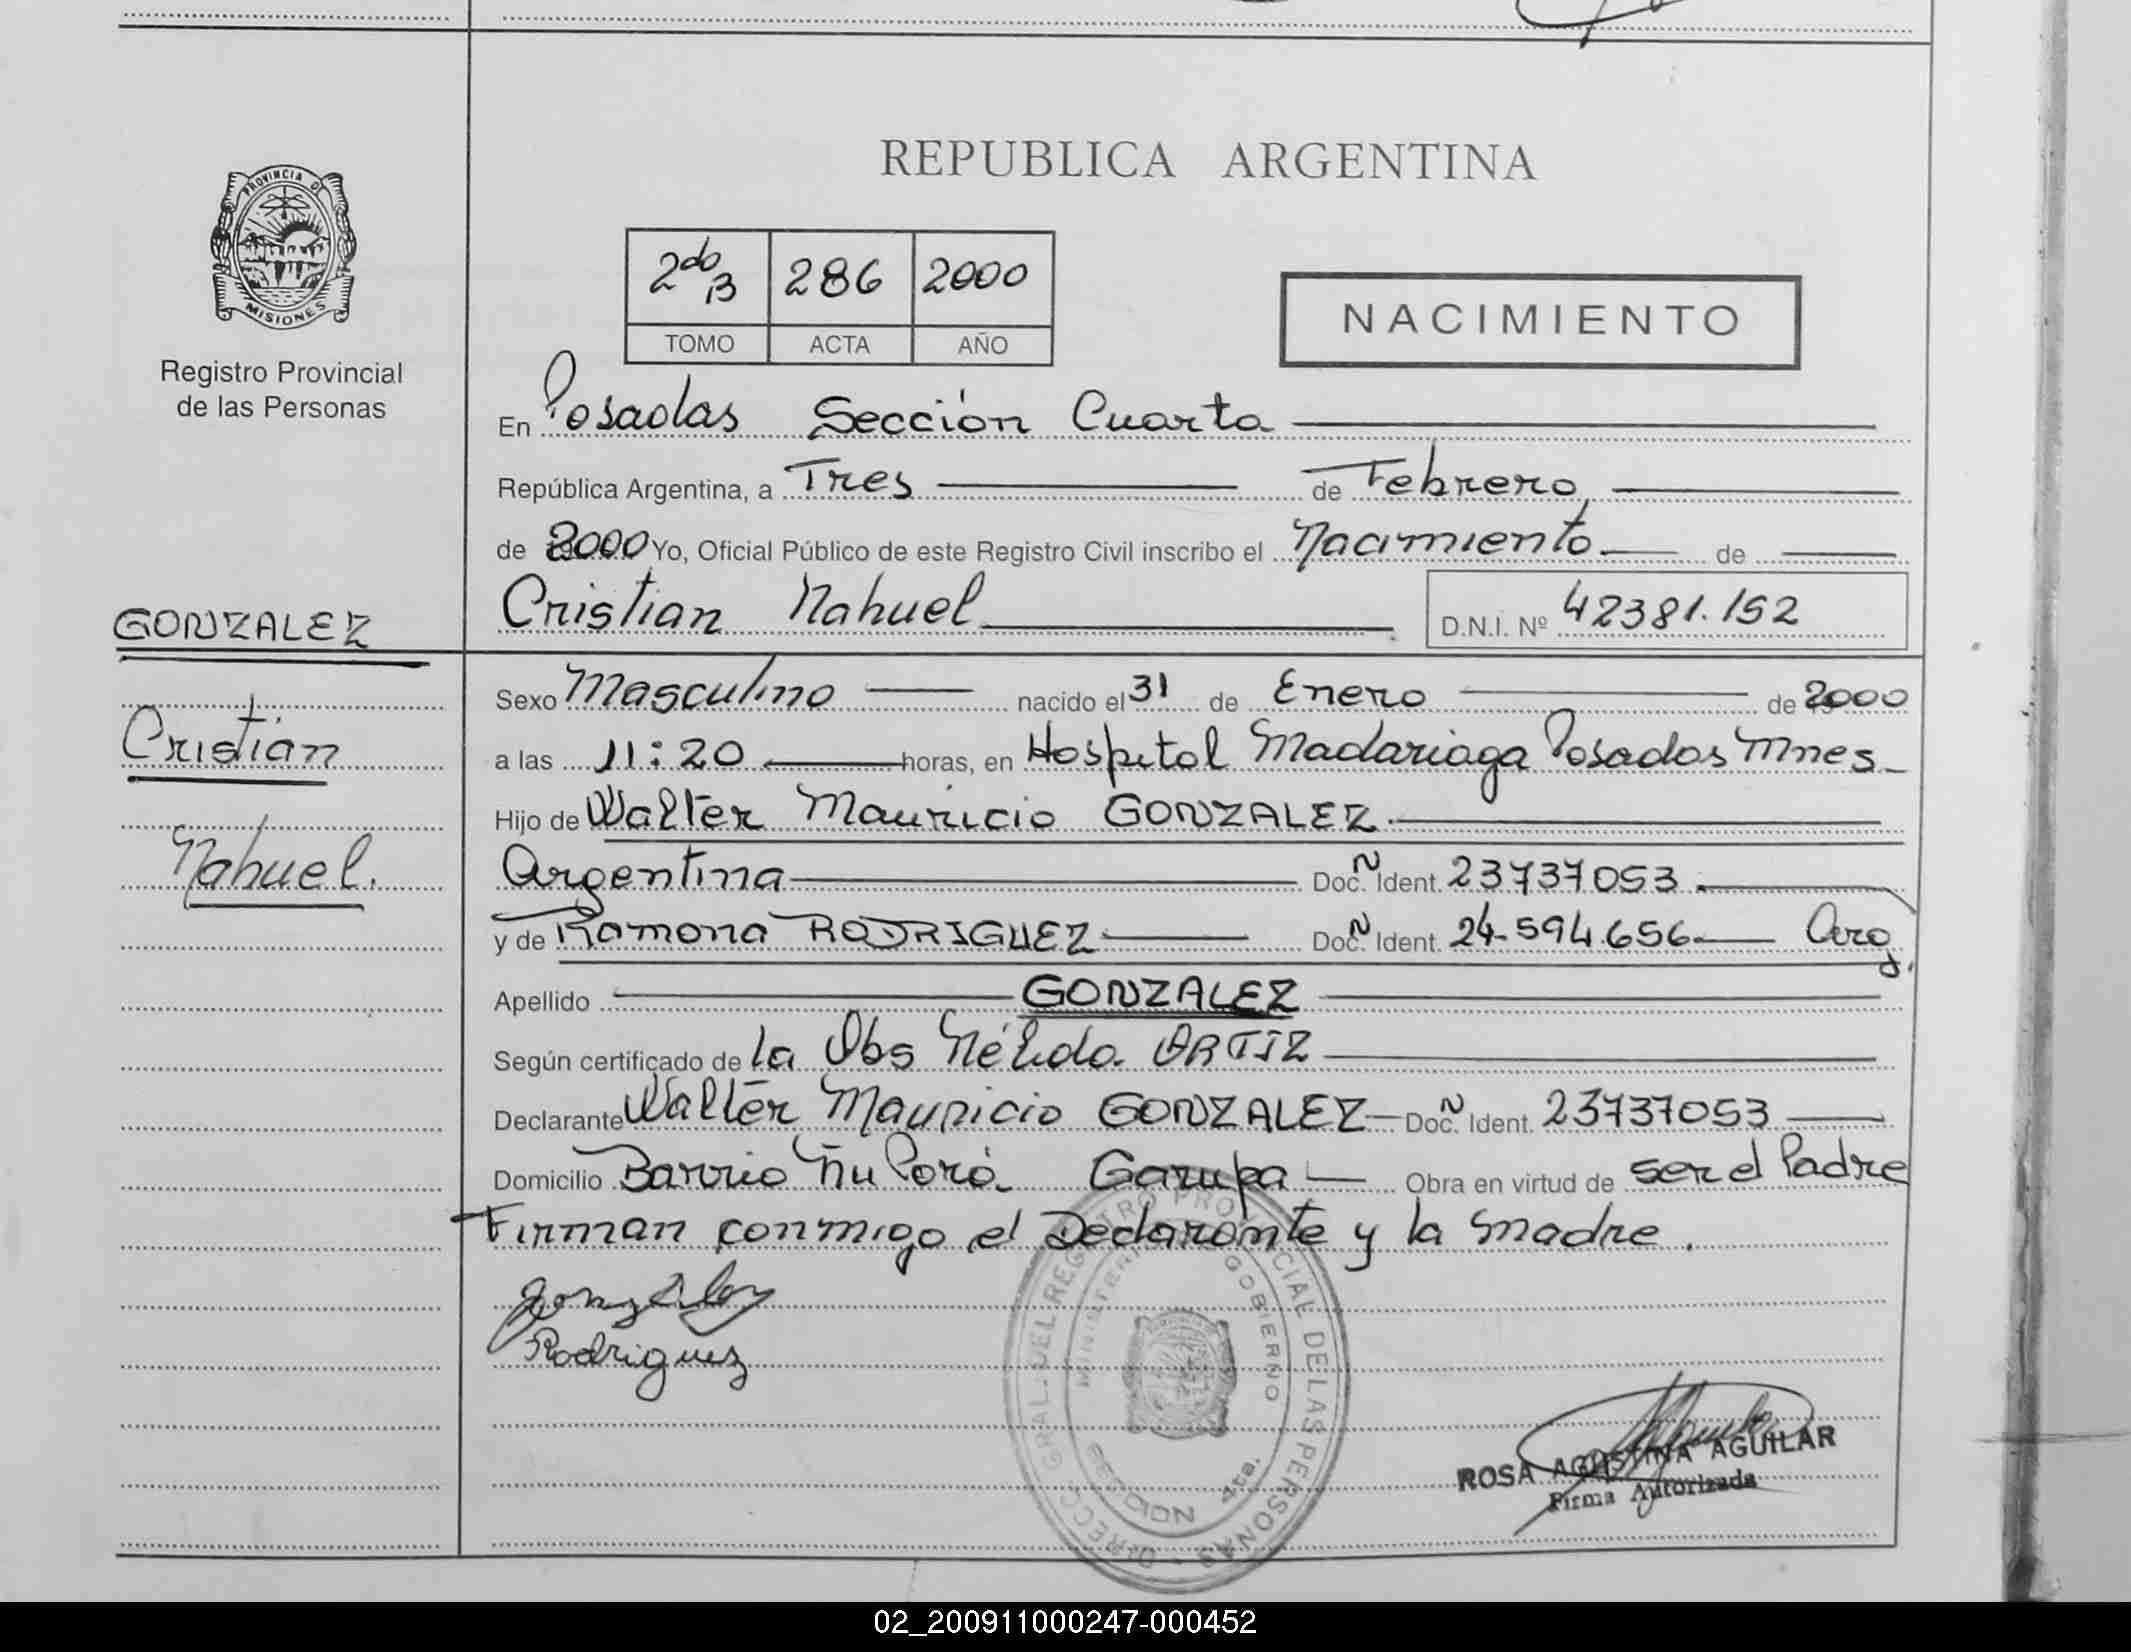 REPUBLICA ARGENTINA
PROVINCIA D
MISIONES
Registro Provincial
de las Personas
2do B 286 2000
TOMO ACTA AÑO
NACIMIENTO
En Posadas Sección Cuarta
República Argentina, a Tres de Febrero,
de 2000 Yo, Oficial Público de este Registro Civil inscribo el Nacimiento de
GONZALEZ
Cristian Nahuel D.N.I. Nº 42381.152
Sexo Masculino nacido el 31 de Enero de 2000
Cristian
a las 11:20 horas, en Hospital Madariaga Posadas Mnes
Hijo de Walter Mauricio GONZALEZ
Nahuel.
Argentina Doc. Ñ Ident. 23737053
y de Ramona RODRIGUEZ Doc. Ñ Ident. 24.594.656 Arg.
Apellido GONZALEZ
Según certificado de la Obs Nélida ORTIZ
Declarante Walter Mauricio GONZALEZ Doc. Ñ Ident. 23737053
Domicilio Barrio Ñu Porá Garupa Obra en virtud de ser el Padre
Firman conmigo el Declarante y la madre.
Gonzalez
Rodriguez
DIRECC. GRAL. DEL REGISTRO PROVINCIAL DE LAS PERSONAS
MINISTERIO GOBIERNO
SECCION 4ta.
ROSA AGOSTINA AGUILAR
Firma Autorizada
02_200911000247-000452